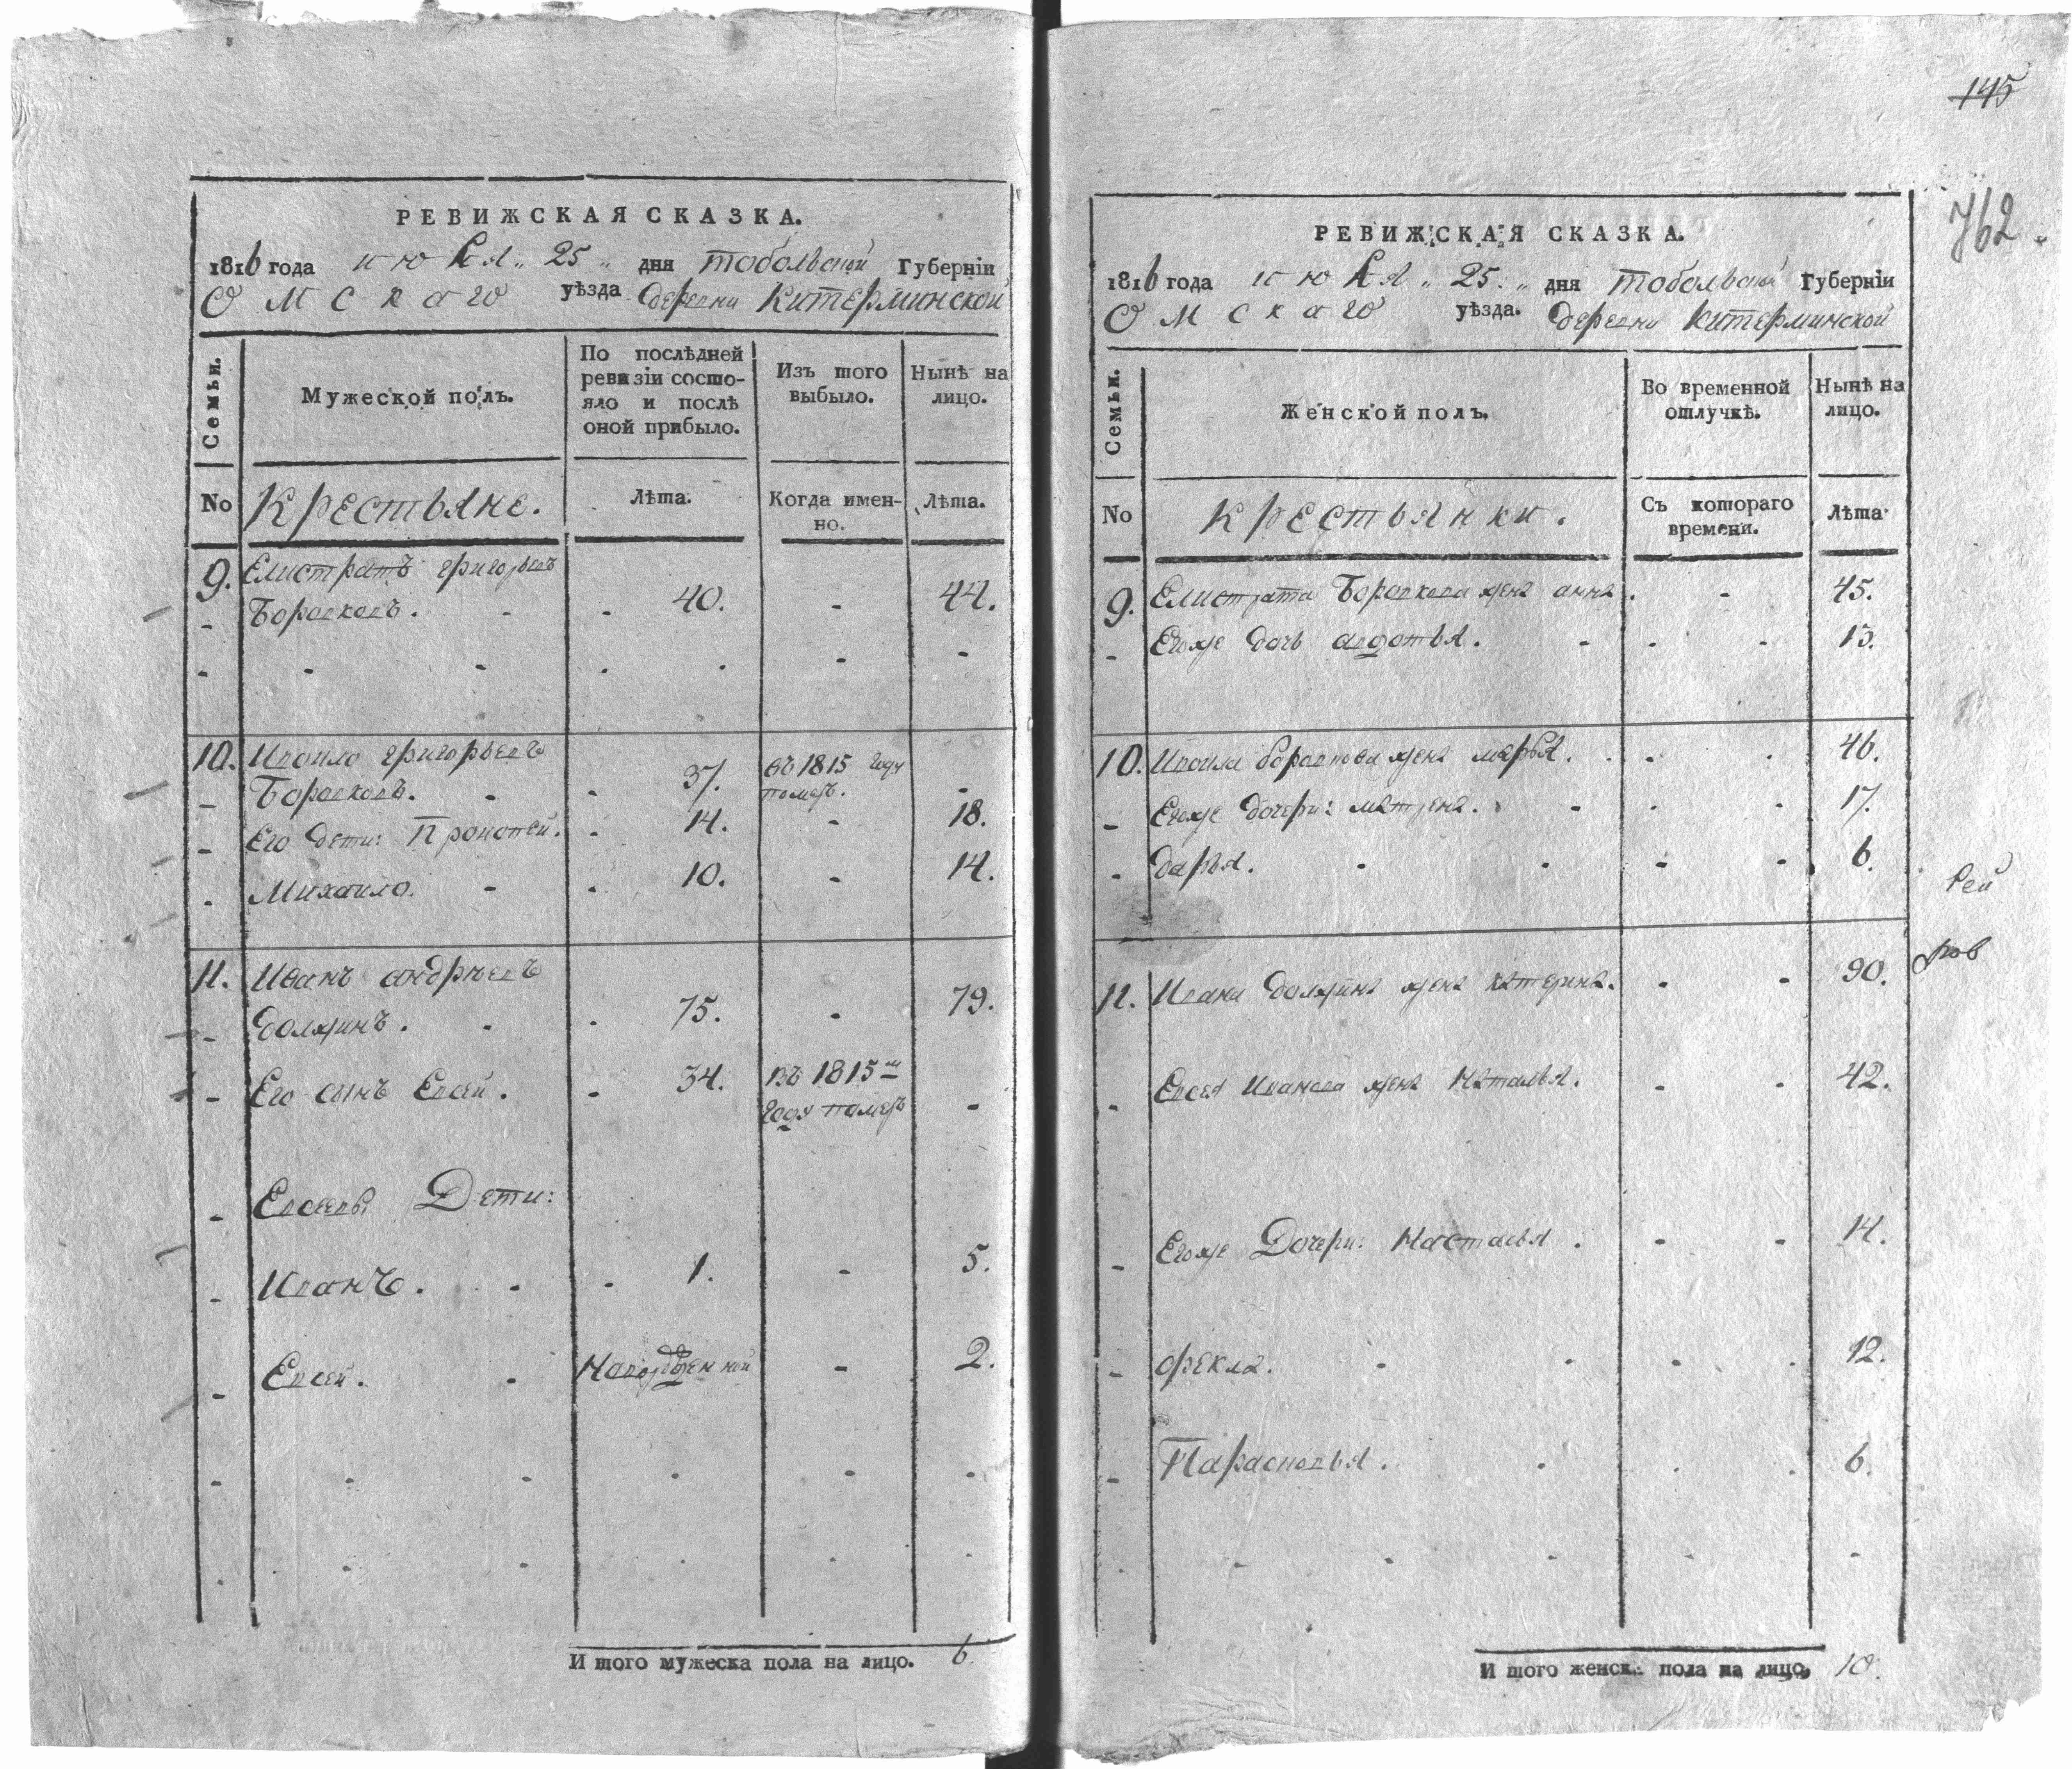 РЕВИЖСКАЯ СКАЗКА.
1816 года июля „ 25 „ дня тобольской Губерніи
Омскаго уѣзда деревни Китерминской
Семьи.
Мужеской полъ.
По послѣдней ревизіи состояло и послѣ оной прибыло.
Изъ того выбыло.
Нынѣ на лицо.
No Крестьяне. Лѣта. Когда именно. Лѣта.
9. Елистратъ григорьевъ
Боровковъ. 40. - 44.
10. Ивоило григорьевъ
Боровковъ. 37. въ 1815 году померъ. -
Его дети: Прокопей. 14. - 18.
Михаило. 10. - 14.
11. Иванъ андрѣевъ
Должинъ. 75. - 79.
Его сынъ Евсей. 34. въ 1815м году померъ -
Евсеевы Дети:
Иванъ. 1. - 5.
Евсей. Новорожденной - 2.
И того мужеска пола на лицо. 6.
145
762.
РЕВИЖСКАЯ СКАЗКА.
1816 года июля „ 25. „ дня тобольской Губерніи
Омскаго уѣзда. деревни Китерминской
Семьи.
Женской полъ.
Во временной отлучкѣ.
Нынѣ на лицо.
No Крестьянки. Съ котораго времени. Лѣта
9. Елистрата Боровкова жена анна. - 45.
Егоже дочь авдотья. - 13.
10. Ивоила боровкова жена марья. 46.
Егоже дочери: матрена. - 17.
дарья. - 6.
рей
11. Ивана должина жена катерина. - 90.
ров
Евсея Иванова жена Наталья. - 42.
Егоже Дочери: Настасья. - 14.
фекла. - 12.
Парасковья. 6.
И того женска пола на лицо, 10.